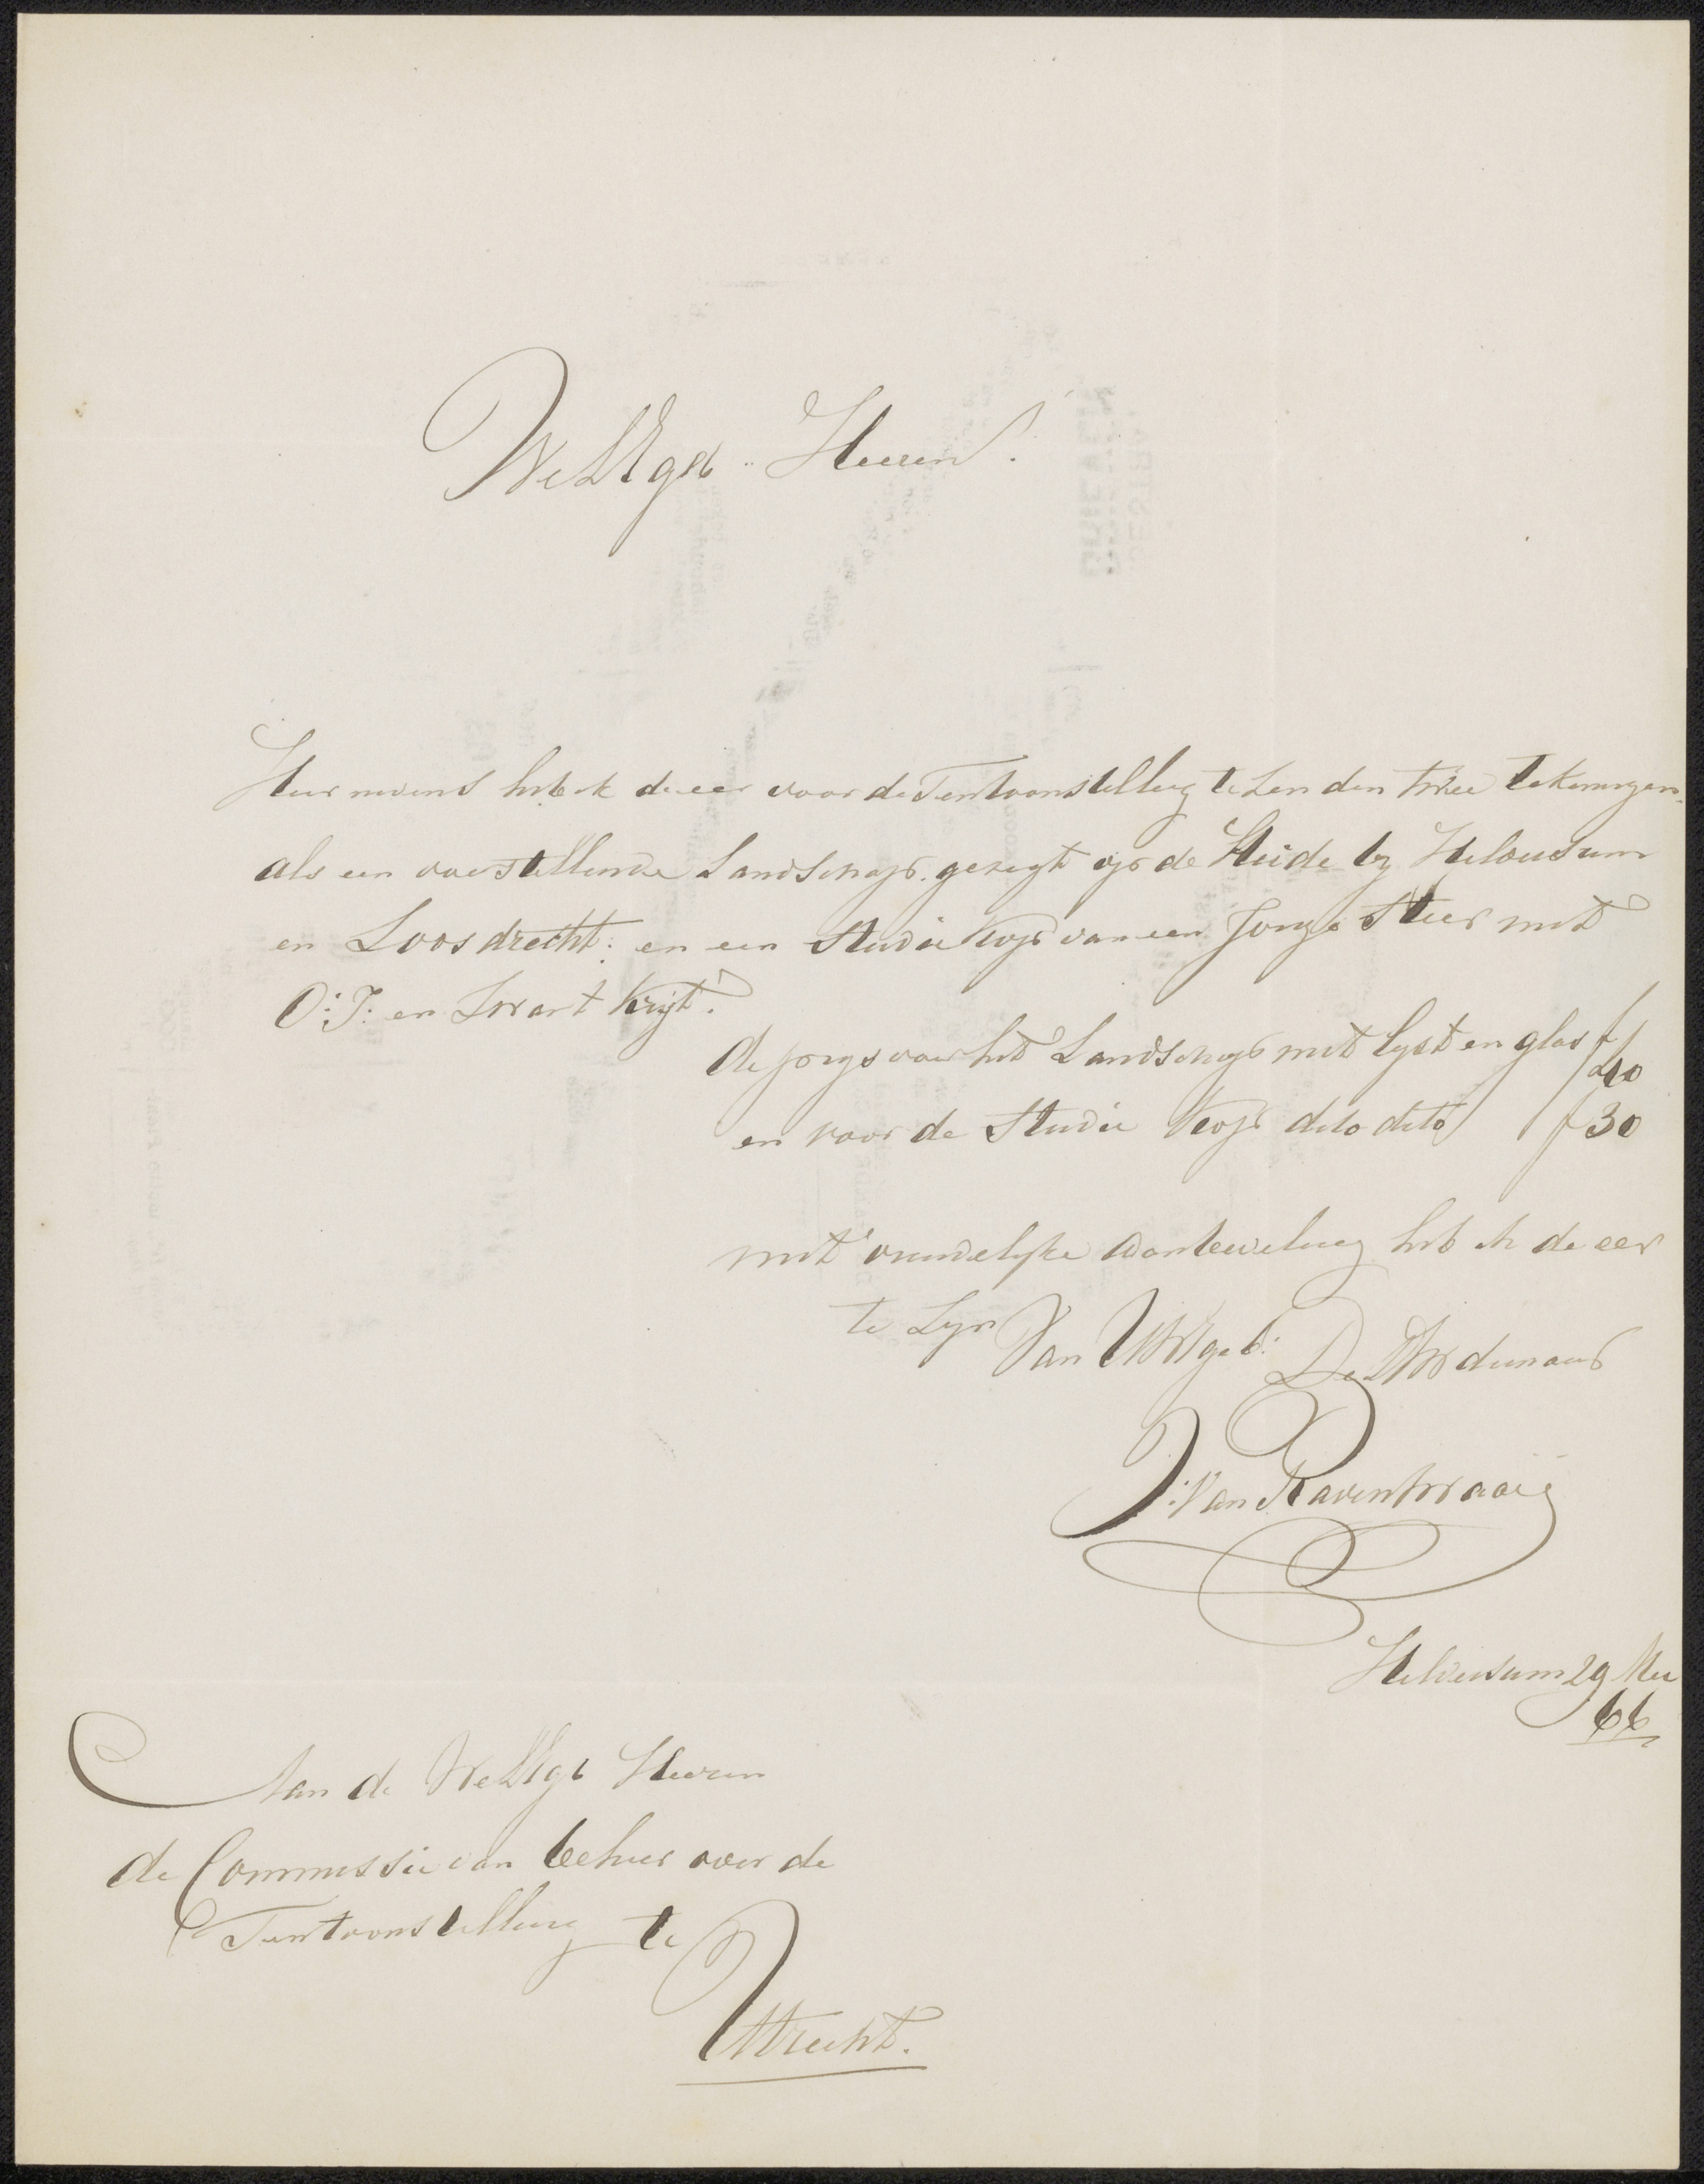 WelEgeb. Heeren!
Hier nevens heb ik de eer voor de Tentoonstelling te Zenden twee tekeningen
als een voorstellende Landschap. gezigt op de Heide by Hilversum
en Loosdrecht: en een Studie Kop van een Jonge Stier met
O: I: en Zwart Krijt!
de prys voor het Landschap met lyst en glas f 40
en voor de Studie Kop dito dito f 30
met vriendelyke aanbeveling heb ik de eer
te Zyn Van UWEgeb: De DWdienaar
J: Van Ravenswaaij
Hilversum 29 Mei
66
Aan de WelEgb Heeren
de Commissie van beheer over de
Tentoonstelling te
Utrecht.